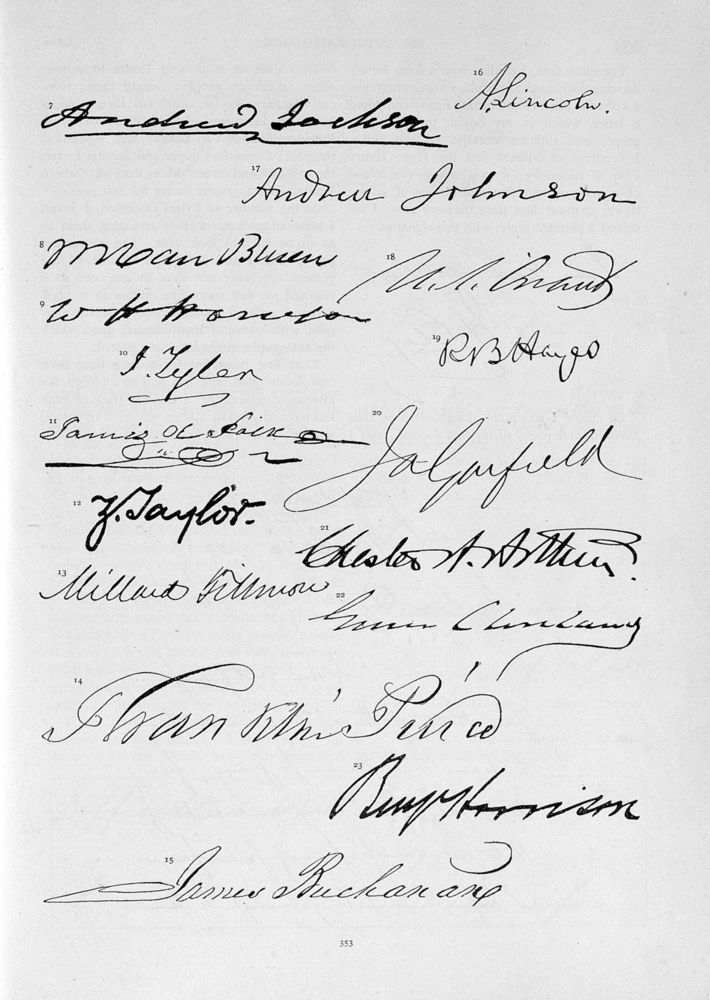 16 A. Lincoln.
7 Andrew Jackson
17 Andrew Johnson
8 M Van Buren
18 U. S. Grant
9 W H Harrison
19 R B Hayes
10 J. Tyler
11 James K Polk
20 J A Garfield
12 Z. Taylor.
21 Chester A. Arthur.
13 Millard Fillmore
22 Grover Cleveland
14 Franklin Pierce
23 Benj Harrison
15 James Buchanan
353